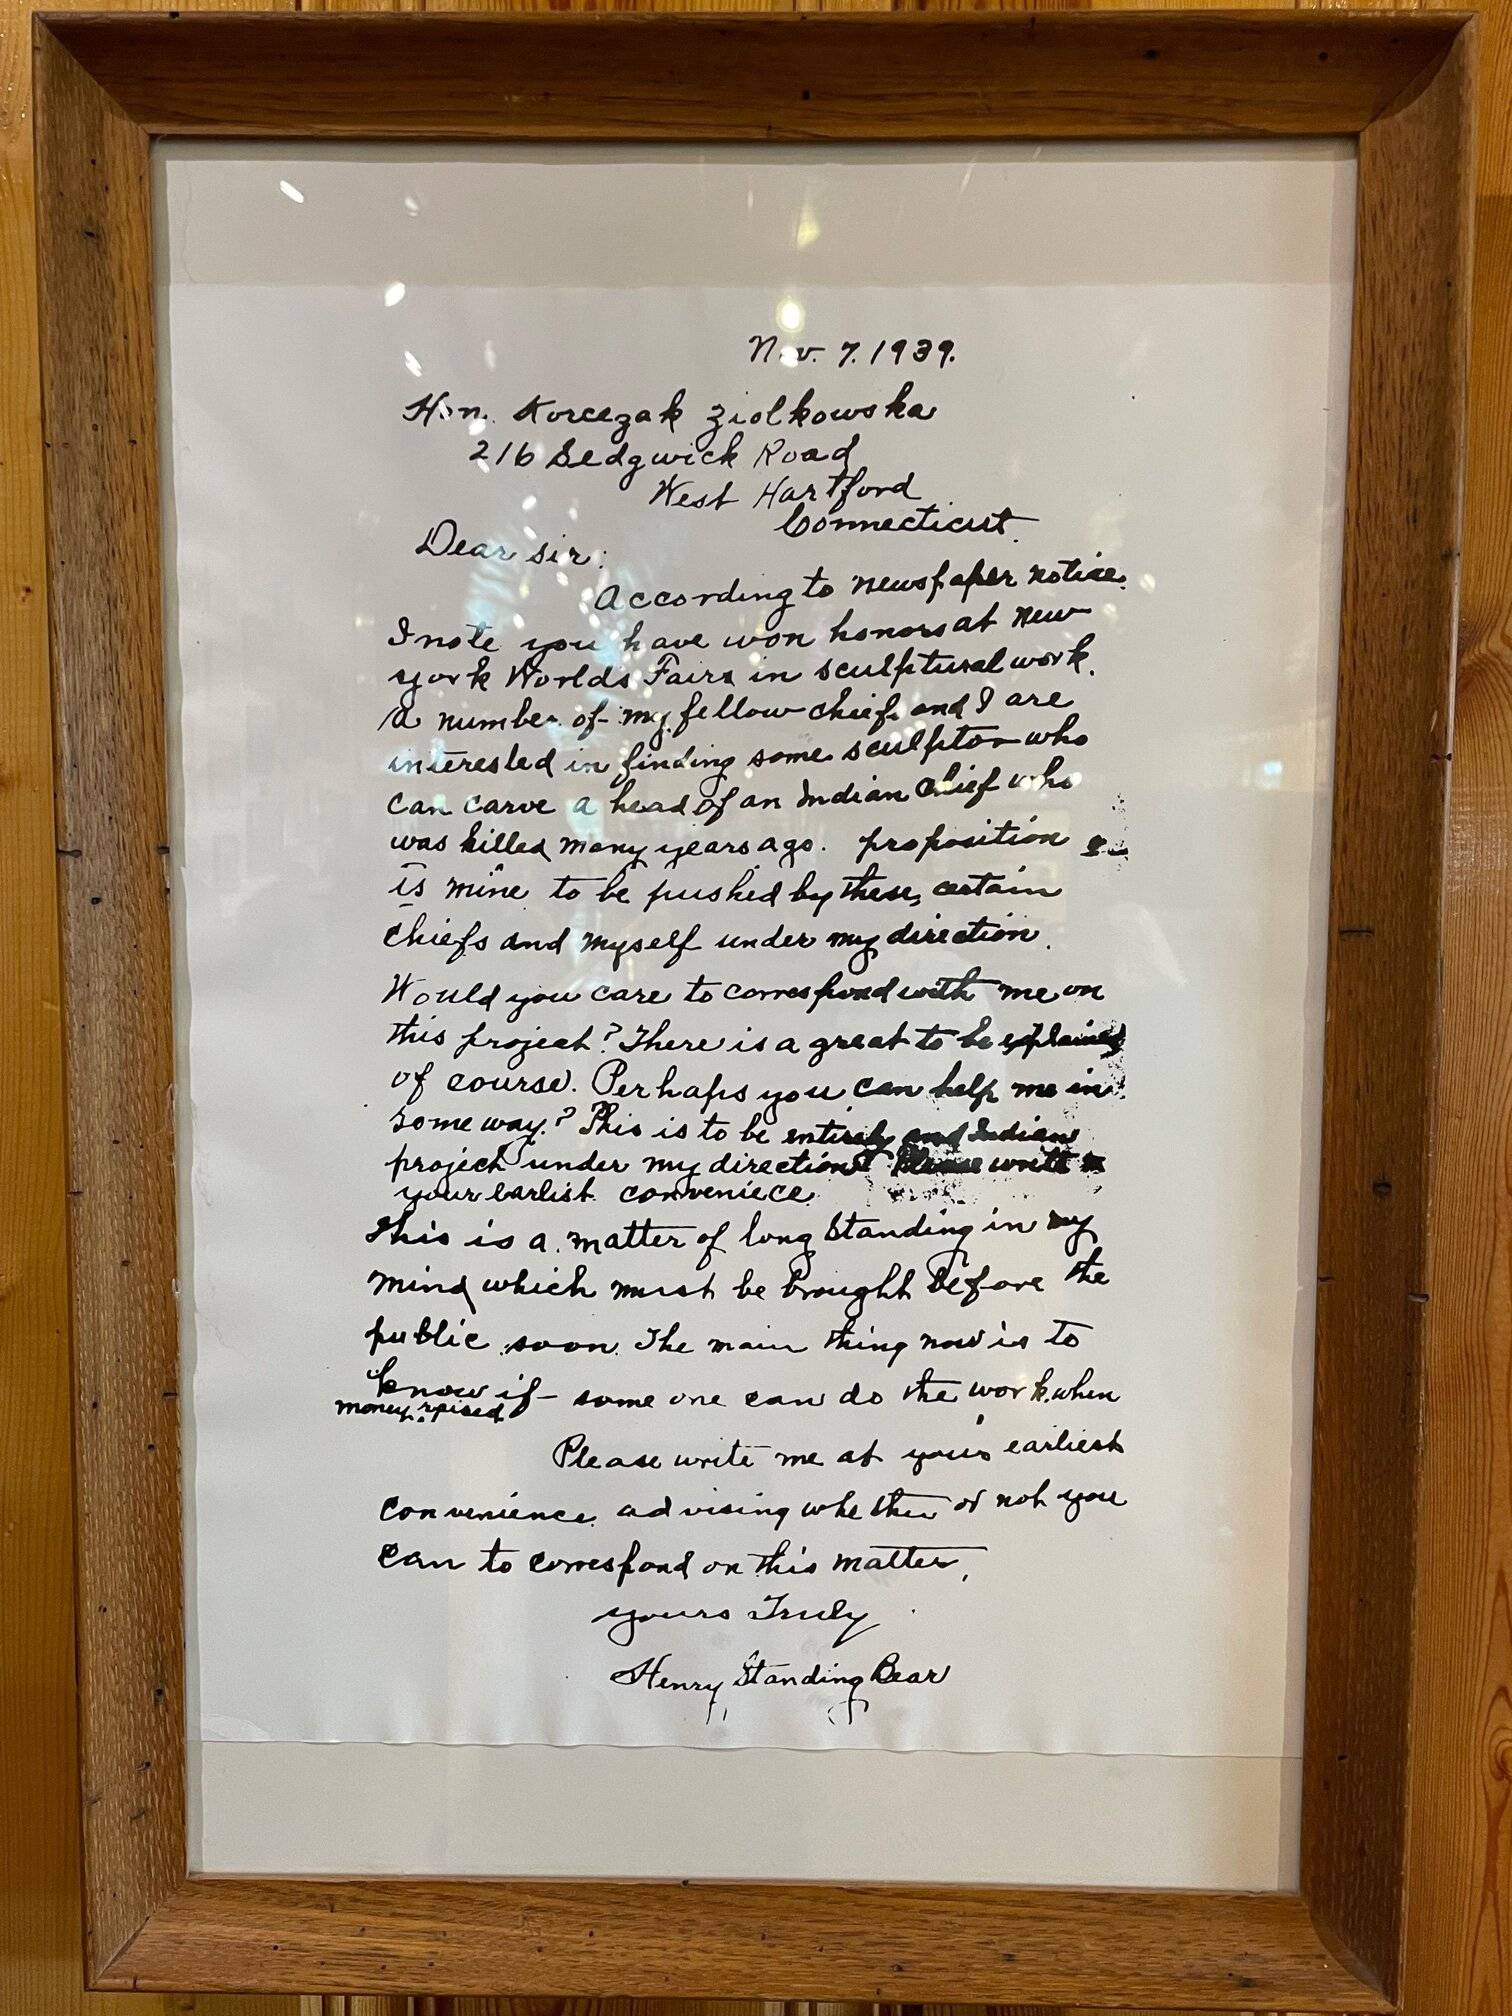 Nov. 7. 1939.
Hon. Korcezak Ziolkowska
216 Sedgwick Road
West Hartford
Connecticut.
Dear sir:
According to newspaper notice.
I note you have won honors at new
york Worlds Fairs in sculptural work.
A number of my fellow chiefs and I are
interested in finding some sculptor who
can carve a head of an Indian Chief who
was killed many years ago. proposition
is mine to be pushed by these, certain
chiefs and myself under my direction.
Would you care to correspond with me on
this project? There is a great to be explained
of course. Perhaps you can help me in
some way? This is to be entirely and Indian
project under my direction. Please write
your earlist conveniece.
This is a matter of long standing in my
mind which must be brought before the
public soon. The main thing now is to
know if some one can do the work. when
money raised
Please write me at your earliest
convenience advising whether or not you
can to correspond on this matter.
yours Truly
Henry Standing Bear